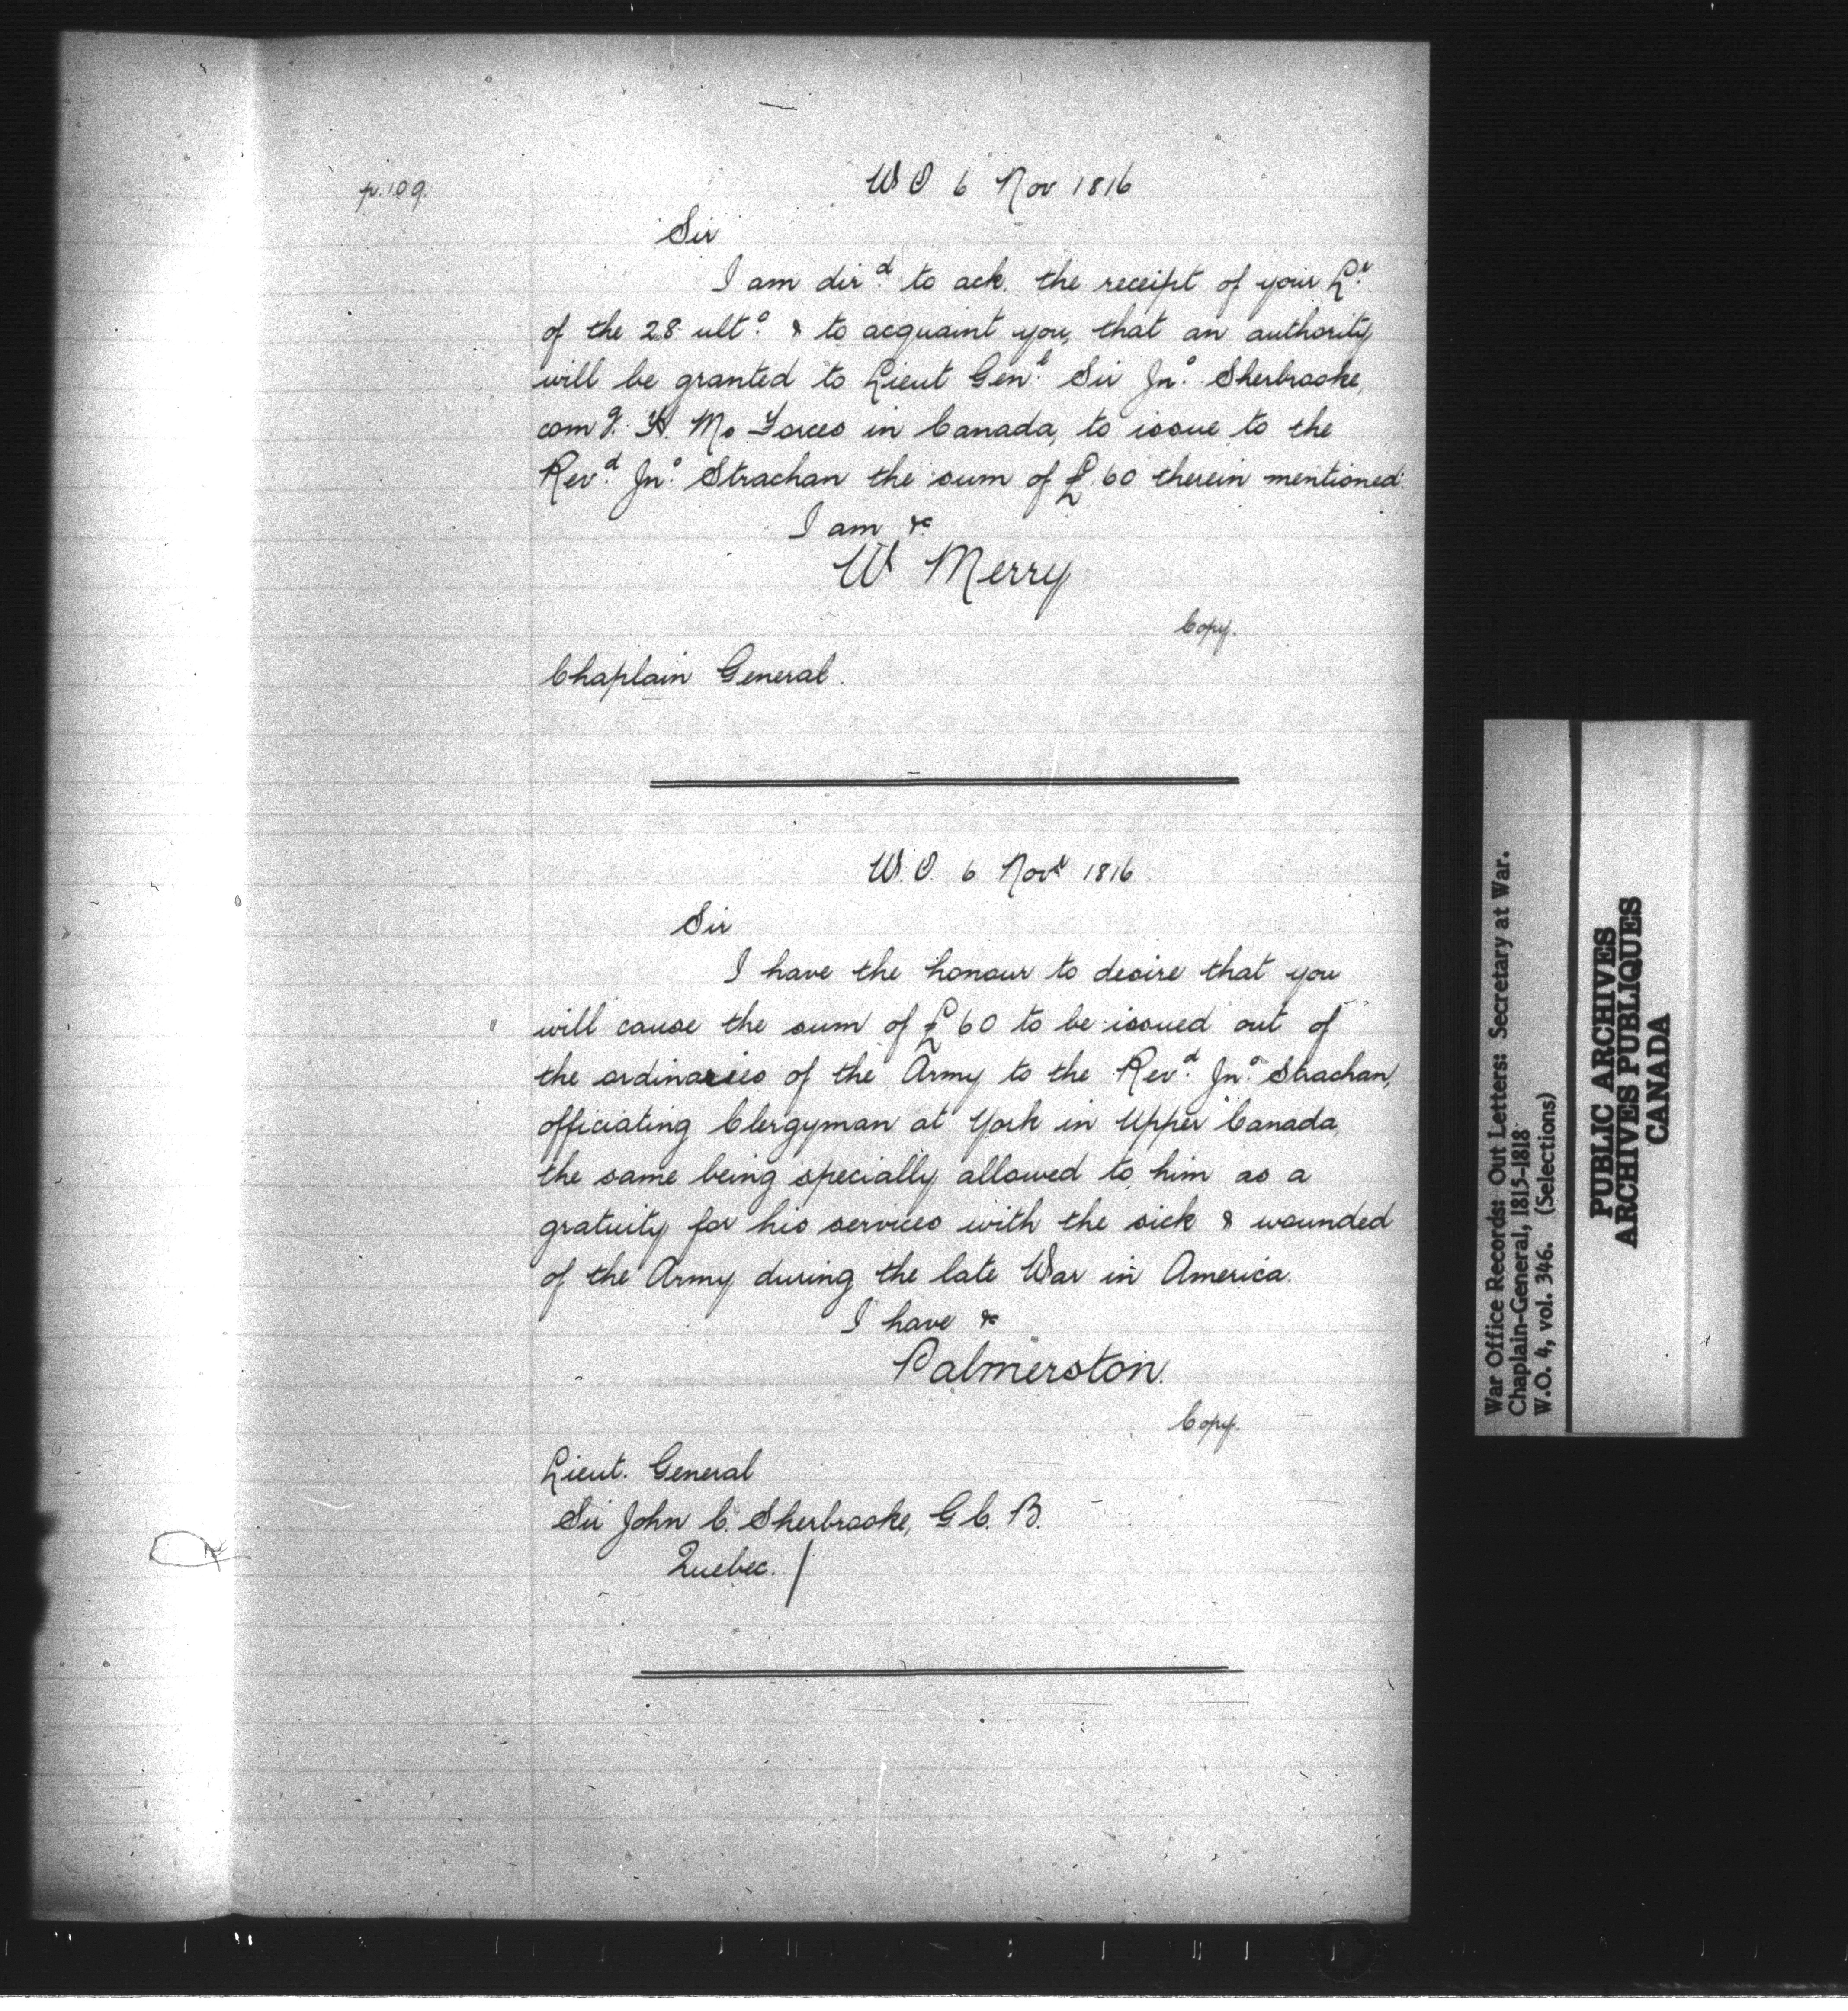 p.109.
W O 6 Nov 1816
Sir
I am dir.d to ack. the receipt of your L.r
of the 28 ult.o & to acquaint you, that an authority
will be granted to Lieut Gen.l Sir Jn.o Sherbrooke,
com.g H. Ms Forces in Canada, to issue to the
Rev.d Jn.o Strachan the sum of £60 therein mentioned.
I am &c
W Merry
Copy.
Chaplain General.
W.O. 6 Novr 1816
Sir
I have the honour to desire that you
will cause the sum of £60 to be issued out of
the ordinaries of the Army to the Rev.d Jn.o Strachan,
officiating Clergyman at York in Upper Canada,
the same being specially allowed to him as a
gratuity for his services with the sick & wounded
of the Army during the late War in America.
I have &c
Palmerston.
Copy.
Lieut. General
Sir John C. Sherbrooke, G.C.B.
Quebec. /
War Office Records: Out Letters: Secretary at War.
Chaplain-General, 1815-1818
W.O. 4, vol. 346. (Selections)
PUBLIC ARCHIVES
ARCHIVES PUBLIQUES
CANADA